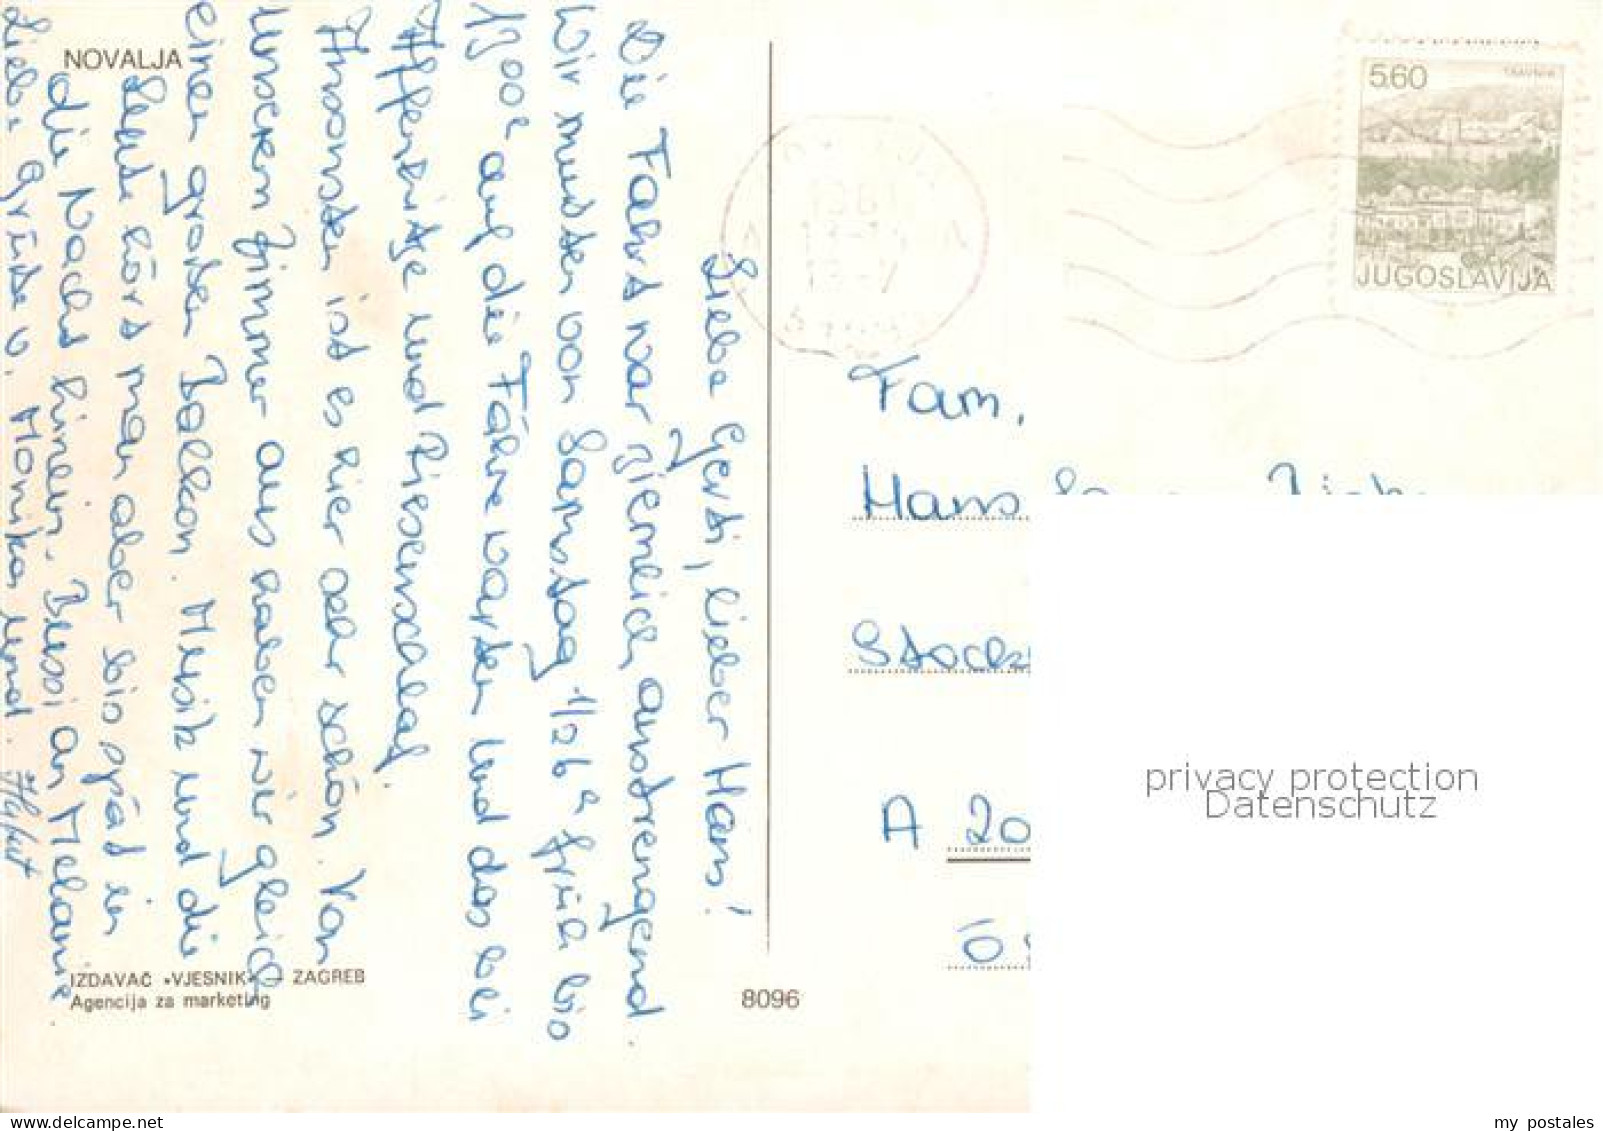 NOVALJA
Liebe Gerti, lieber Hans!
Die Fahrt war ziemlich anstrengend.
Wir mußten von Samstag 1/2 6h früh bis
1300h auf die Fähre warten und das bei
Affenhitze und Riesenschlaf.
Ansonsten ist es hier sehr schön. Von
unserem Zimmer aus haben wir gleich
einen großen Balkon. Musik und die
Leute hört man aber bis spät in
die Nacht hinein. Bussi an Melanie
Liebe Grüße v. Monika und
IZDAVAČ »VJESNIK« — ZAGREB
Agencija za marketing
8096
5.60
TRAVNIK
JUGOSLAVIJA
Fam.
Hans
A 20
privacy protection
Datenschutz
my postales